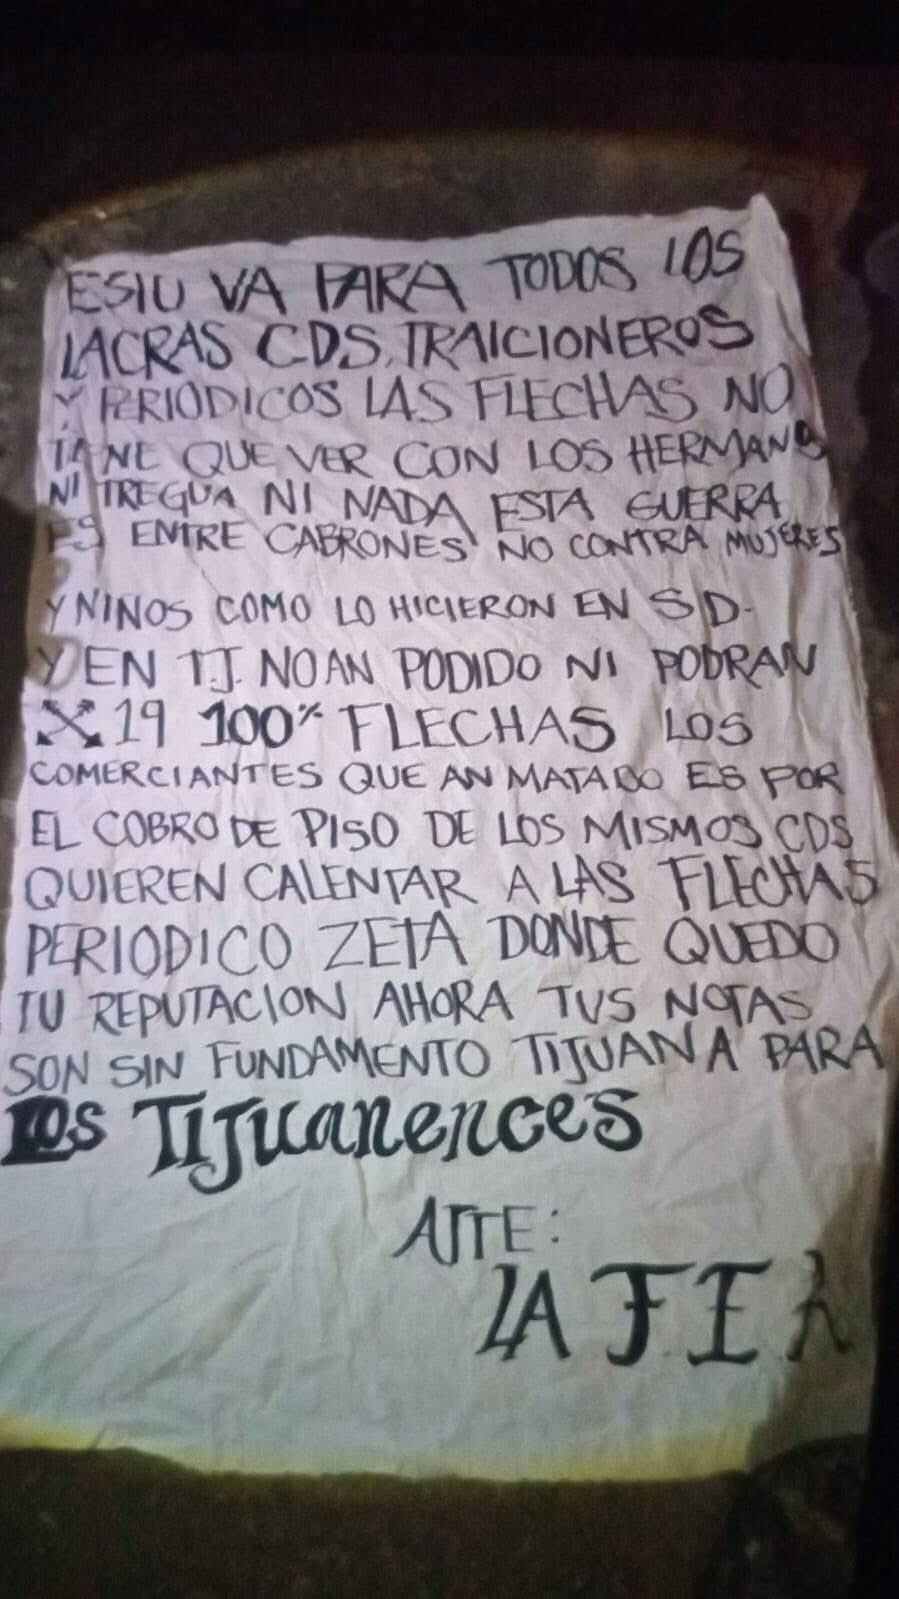 ESTO VA PARA TODOS LOS
LACRAS CDS, TRAICIONEROS
Y PERIODICOS LAS FLECHAS NO
QUE VER CON LOS HERMANOS
NI TREGUA NI NADA ESTA GUERRA
ES ENTRE CABRONES NO CONTRA MUJERES
Y NINOS COMO LO HICIERON EN SD.
Y EN TJ. NO AN PODIDO NI PODRAN
19 100% FLECHAS LOS
COMERCIANTES QUE AN MATADO ES POR
EL COBRO DE PISO DE LOS MISMOS CDS
QUIEREN CALENTAR A LAS FLECHAS
PERIODICO ZETA DONDE QUEDO
TU REPUTACION AHORA TUS NOTAS
SON SIN FUNDAMENTO TIJUANA PARA
LOS TIJUANENCES
ATTE:
LA FEA